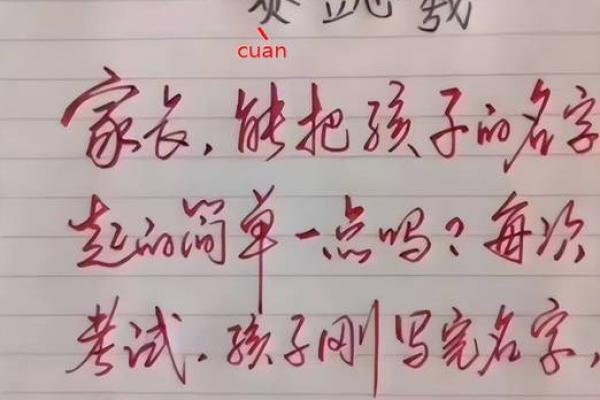 cuan
家长,能把孩子的名字
起的简单一点吗?每次
考试,孩子刚写完名字,